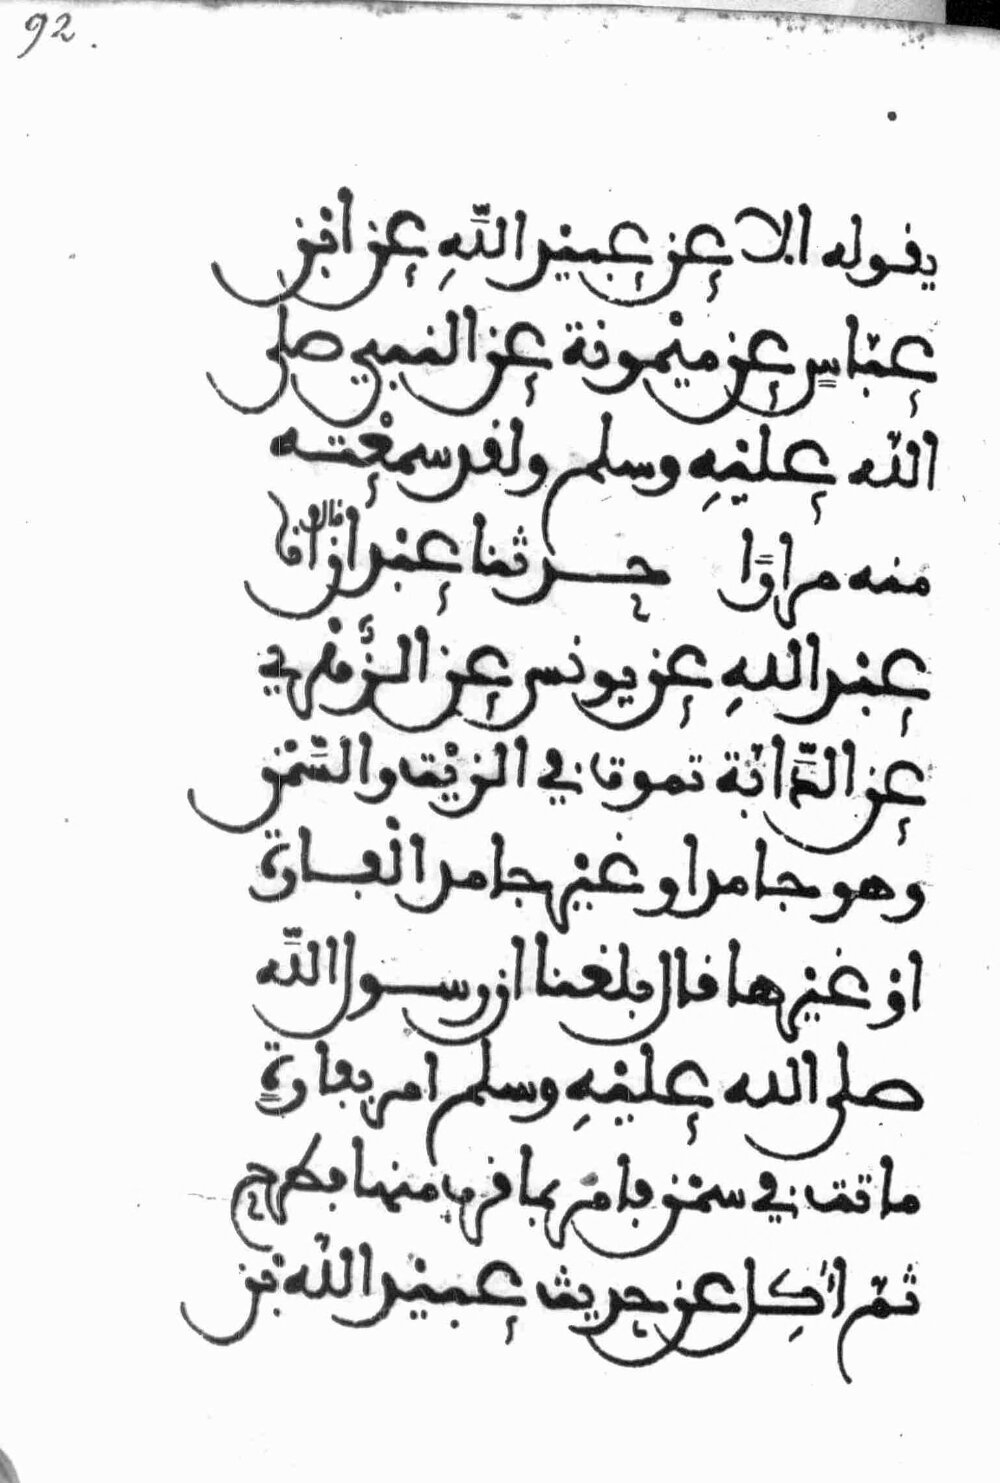 92.
يقوله الا عن عبيد اللهِ عن ابن
عبّاسٍ عن ميْمونة عن النبي صلى
الله عليْهِ وسلم ولقد سمعْته
منه مرارًا حدثنا عبْدان قال انا
عبْد اللهِ عن يونس عن الزُّهْري
عن الدَّابّة تموت في الزيْت والسَّمْن
وهو جامد او غيْر جامد الْفارة
اوْ غيْرها قال بلغنا ان رسول الله
صلى الله عليْهِ وسلم امر بفارةٍ
ماتت في سمْن فامر بما قرب منها فطرح
ثمّ أُكِل عن حديث عبيْد الله بْن